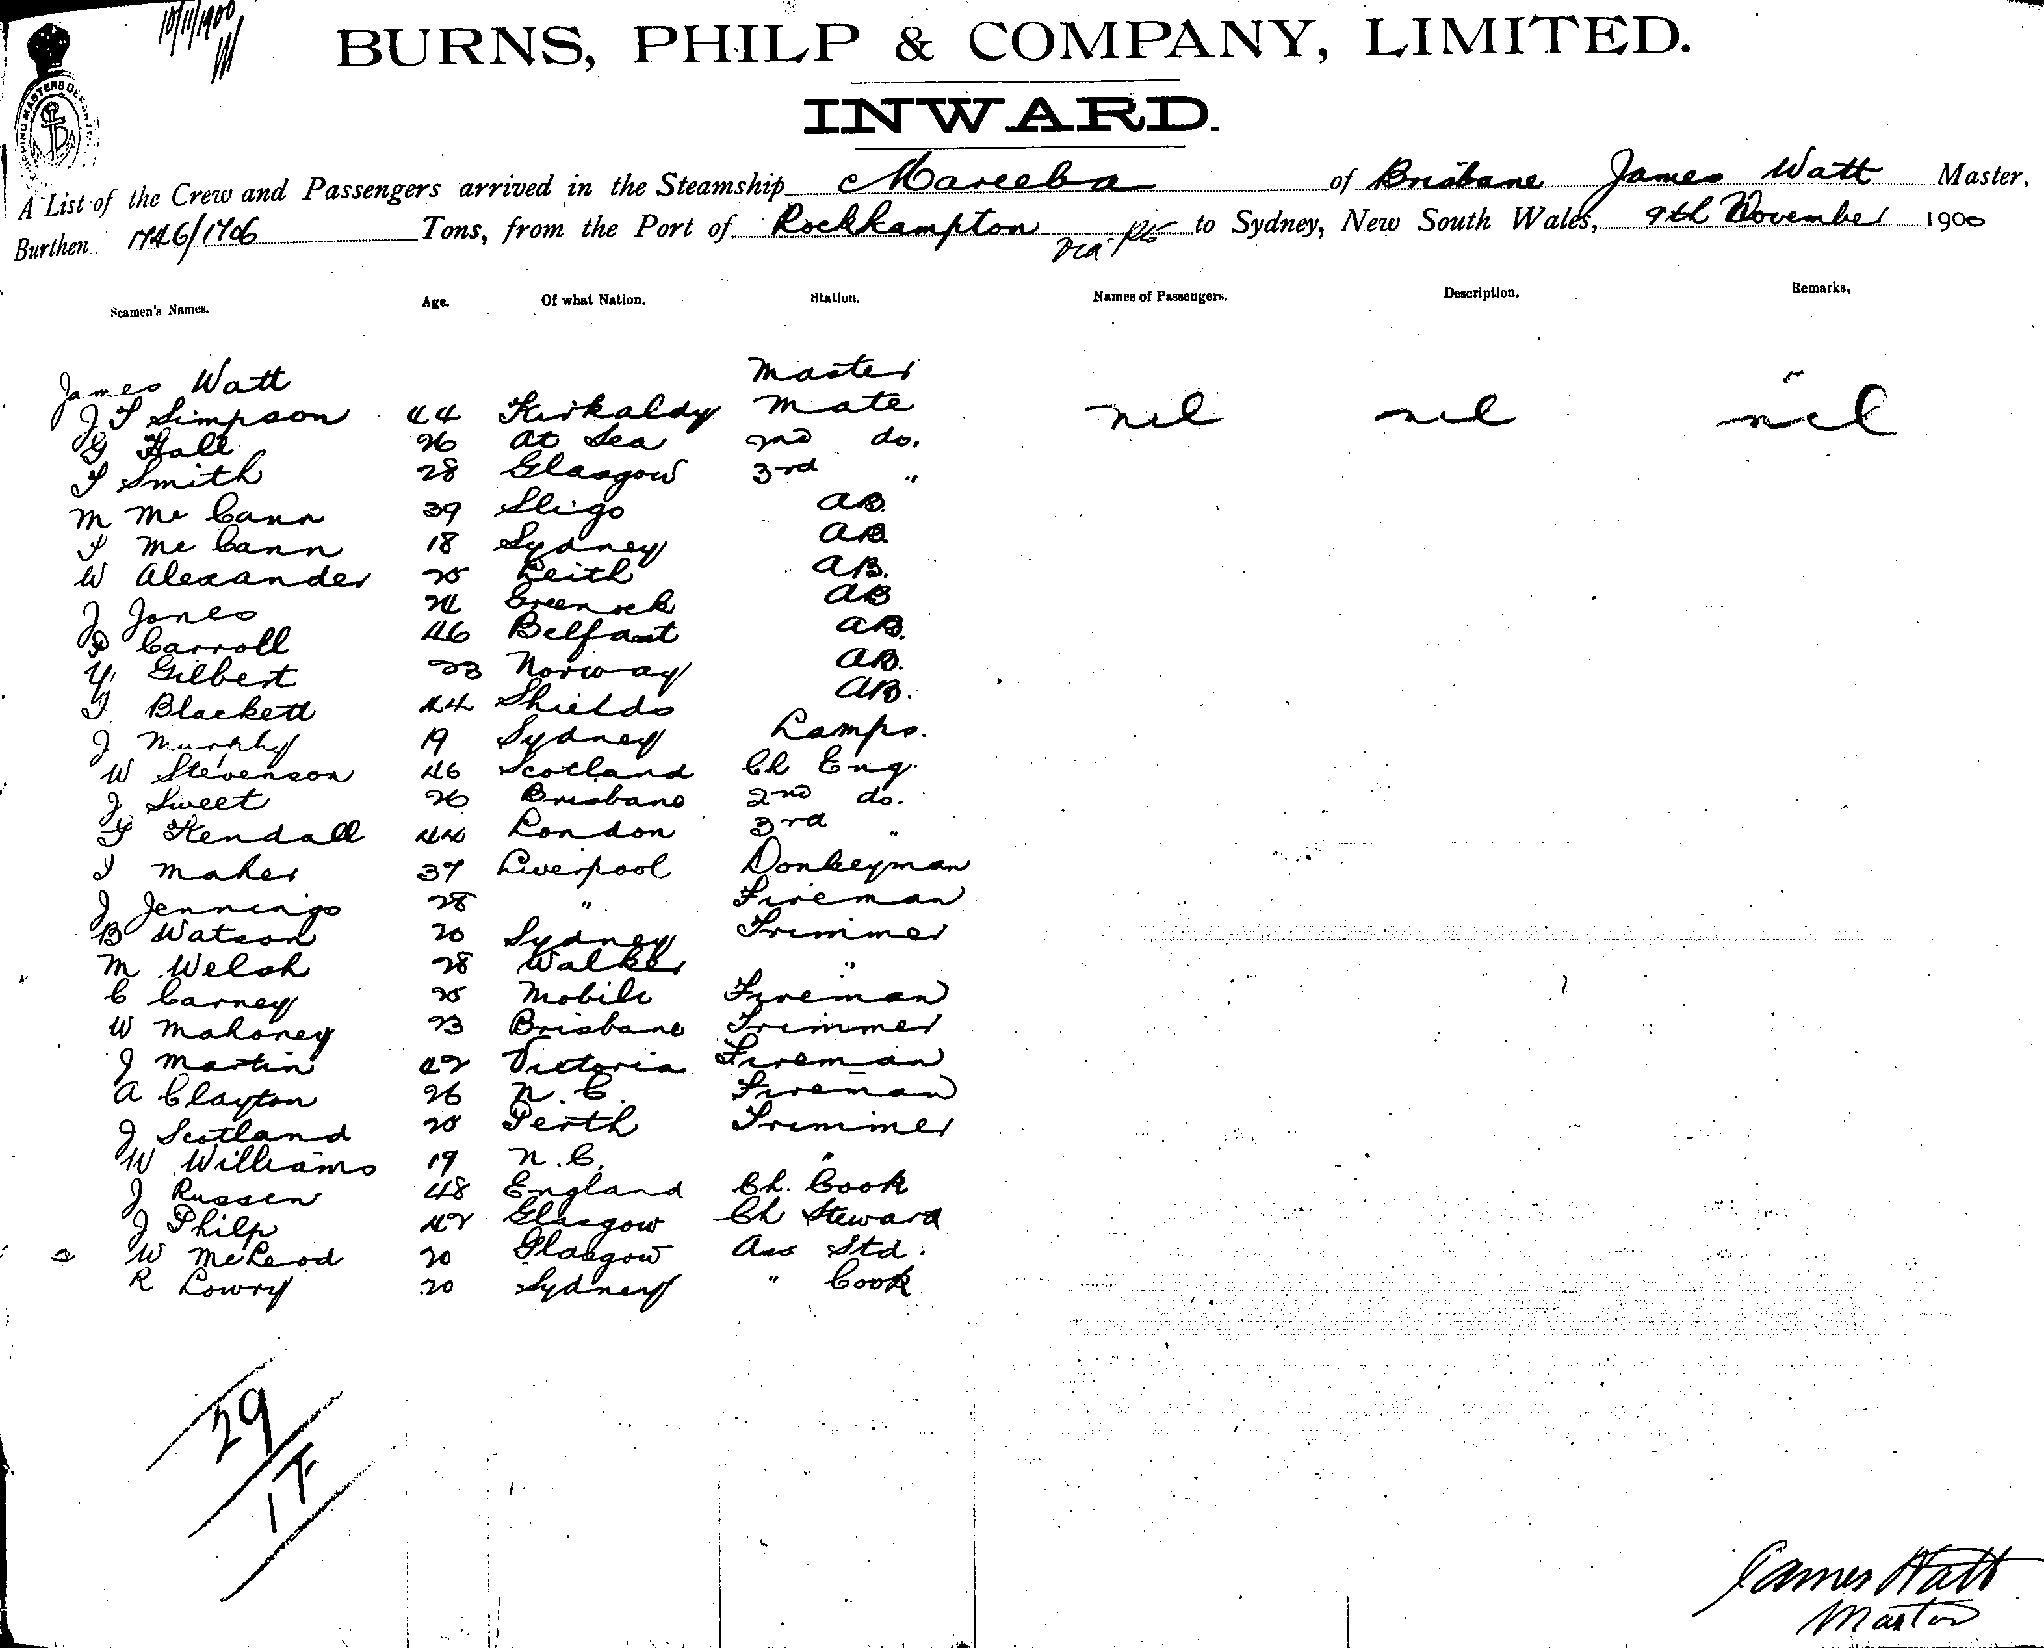 10/11/1900
BURNS, PHILP & COMPANY, LIMITED.
INWARD.
A List of the Crew and Passengers arrived in the Steamship Mareeba of Brisbane James Watt Master,
Burthen 1746/1706 Tons, from the Port of Rockhampton via to Sydney, New South Wales, 9th November 1900
Seamen's Names. Age. Of what Nation. Station. Names of Passengers. Description. Remarks.
James Watt Master
J T Simpson 44 Kirkaldy Mate nil nil nil
G Hall 26 At Sea 2nd do.
T Smith 28 Glasgow 3rd "
M McCann 39 Sligo AB.
T McCann 18 Sydney AB
W Alexander 25 Leith AB.
J Jones 24 Greenock AB
P Carroll 46 Belfast AB.
Y. Gilbert 23 Norway AB.
T Blackett 44 Shields AB.
J Murphy 19 Sydney Lamps.
W Stevenson 46 Scotland Ch Eng.
J Sweet 26 Brisbane 2nd do.
T Kendall 44 London 3rd "
T Maher 37 Liverpool Donkeyman
J Jennings 28 " Fireman
B Watson 20 Sydney Trimmer
M Welsh 28 Walker "
C Carney 25 Mobile Fireman
W Mahoney 23 Brisbane Trimmer
J Martin 42 Victoria Fireman
A Clayton 26 N.C. Fireman
J Scotland 25 Perth Trimmer
W Williams 19 N.C. "
J Russen 48 England Ch. Cook
J Philp 42 Glasgow Ch Steward
W McLeod 20 Glasgow Ass Std.
R Lowry 20 Sydney " Cook
29
James Watt
Master